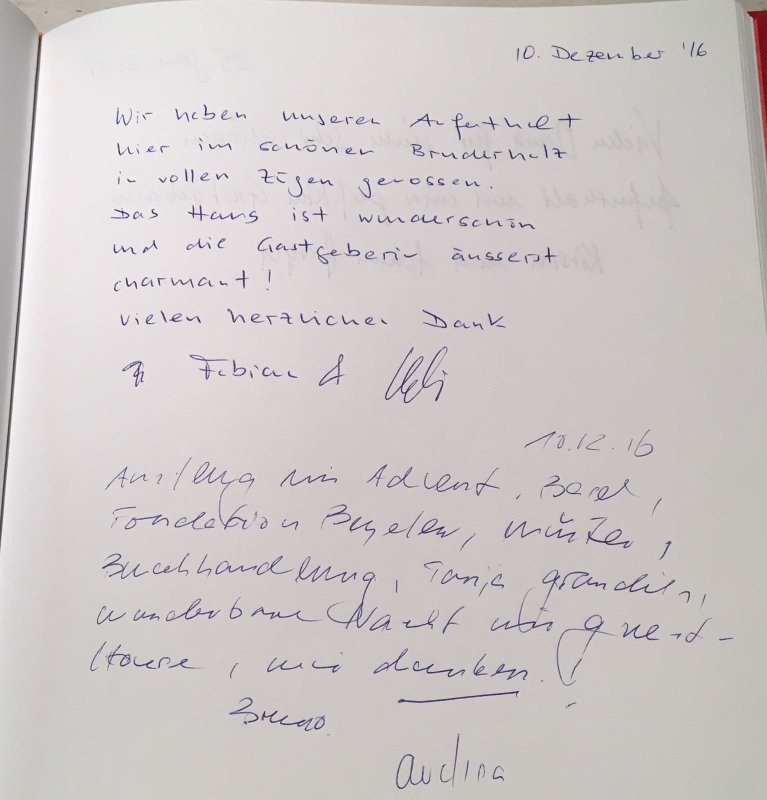 10. Dezember '16
Wir haben unseren Aufenthalt
hier im schönen Bruderholz
in vollen Zügen genossen.
Das Haus ist wunderschön
und die Gastgeberin äusserst
charmant!
Vielen herzlichen Dank
Fabian &
10.12.16
Ausflug im Advent, Basel,
Fondation Beyeler, Münster,
Buchhandlung, Tanja Grandits,
wunderbare Nacht im Guest-
House, wir danken!
Bruno